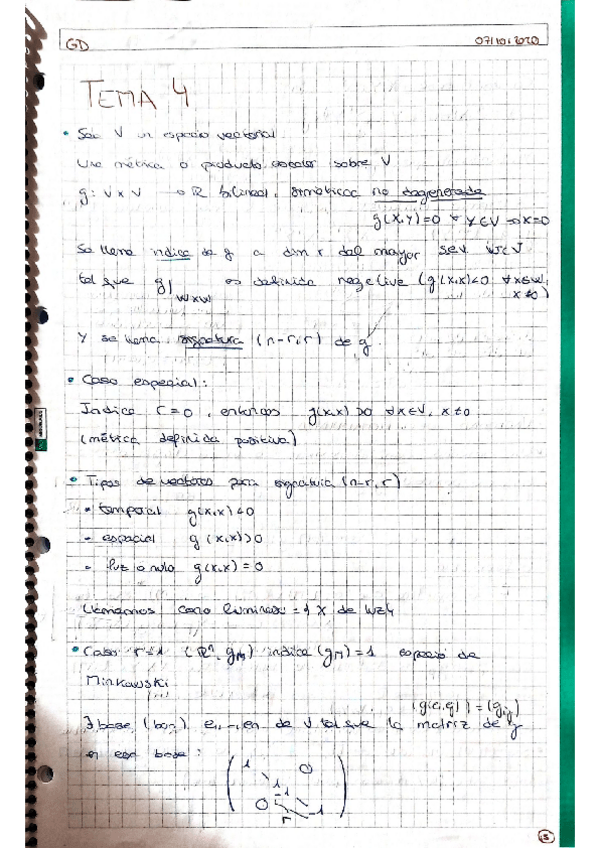 GD 07/10/2020
TEMA 4
• Sea V un espacio vectorial.
Una métrica o producto escalar sobre V
g: V x V → ℝ bilineal, simétrica no degenerada
g(x,y)=0 ∀ y∈V ⇒ x=0
Se llama índice de g a dim r del mayor sev W⊂V
tal que g|W×W es definida negativa (g(x,x)<0 ∀x∈W,
x≠0)
Y se llama signatura (n-r,r) de g.
• Caso especial:
Índice r=0, entonces g(x,x)>0 ∀x∈V, x≠0
(métrica definida positiva)
• Tipos de vectores para signatura (n-r,r)
- temporal g(x,x)<0
- espacial g(x,x)>0
- luz o nulo g(x,x)=0
Llamamos cono luminoso = { x de luz }
• Caso r=1 (ℝⁿ, g_M) índice (g_M)=1 espacio de
Minkowski
(g(ei,ej)) = (gij)
∃ base (bon) e1,...,en de V tal que la matriz de g
en esa base:
1 0
1
-1
0 -1
r
13